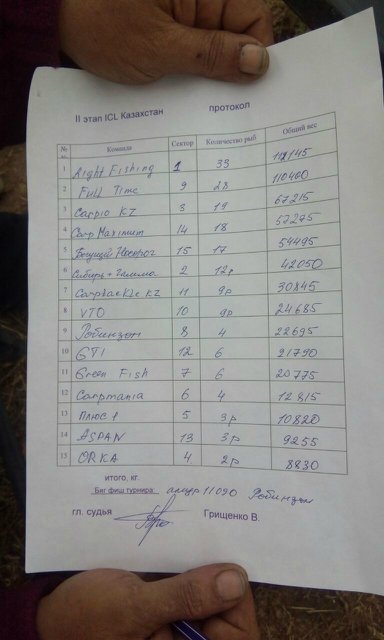 II этап ICL Казахстан протокол
№ Команда Сектор Количество рыб Общий вес
1 Right Fishing 1 33 112145
2 Full Time 9 28 110400
3 Carpio KZ 3 19 67215
4 Carp Maximum 14 18 57275
5 15 17 54495
6 2 12р 42050
7 Carptackle KZ 11 9р 30845
8 VTO 10 9р 24685
9 Робинзон 8 4 22695
10 GTI 12 6 21790
11 Green Fish 7 6 20775
12 Carpmania 6 4 12815
13 Плюс 1 5 3р 10820
14 ASPAN 13 3р 9255
15 ORKA 4 2р 8830
итого, кг.
Биг фиш турнира амур 11090 Робинзон
гл. судья Грищенко В.